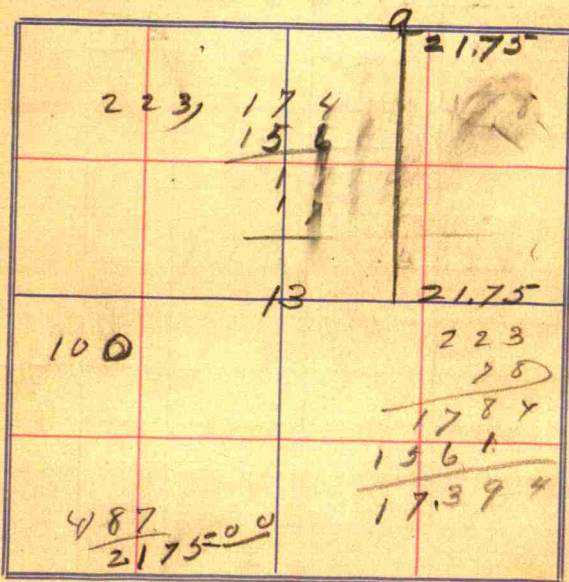 9
21.75
223, 174
156
1
17
13
21.75
100
223
78
1784
1561
17.394
4) 87
2175=00